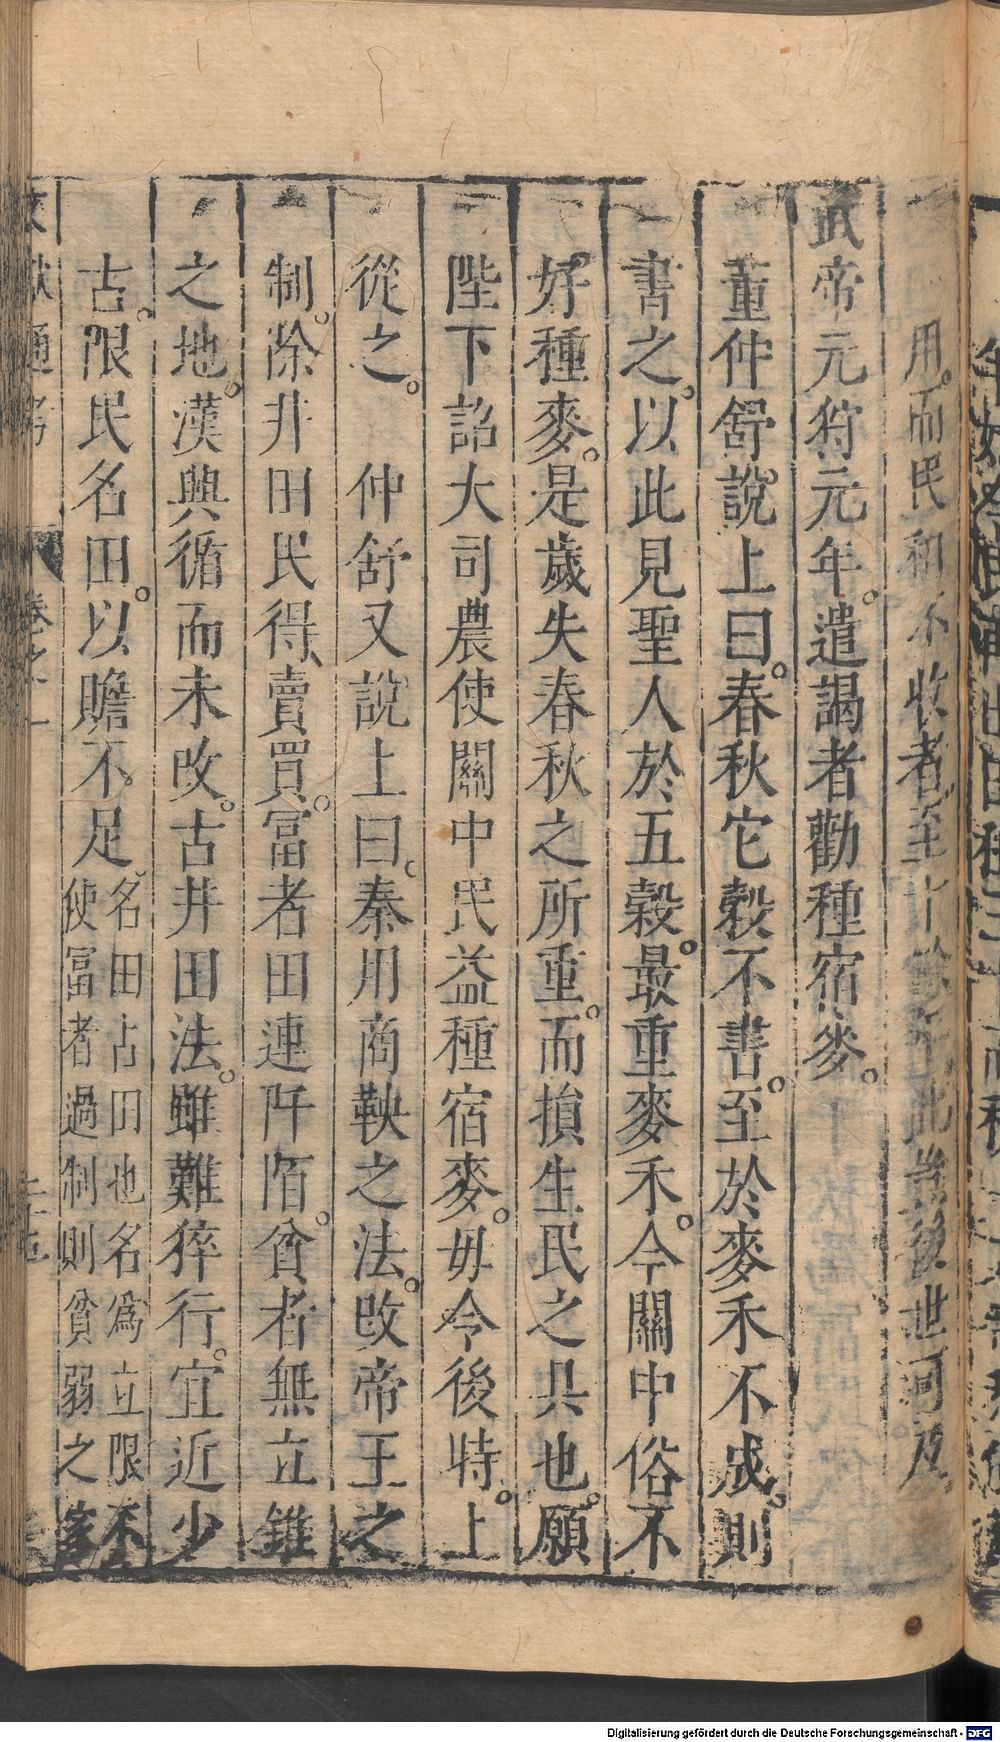 用而民和不收者至十餘年此豈後世可及
武帝元狩元年。遣謁者勸種宿麥。
董仲舒說上曰。春秋它穀不書。至於麥禾不成。則
書之。以此見聖人於五穀。最重麥禾。今關中俗不
好種麥。是歲失春秋之所重。而損生民之具也。願
陛下詔大司農使關中民益種宿麥。毋令後時。上
從之。　仲舒又說上曰。秦用商鞅之法。改帝王之
制。除井田民得賣買。富者田連阡陌。貧者無立錐
之地。漢興循而未改。古井田法。雖難猝行。宜近少
古。限民名田。以贍不足
名田占田也名為立限不
使富者過制則貧弱之家
文獻通考　卷之一
Digitalisierung gefördert durch die Deutsche Forschungsgemeinschaft - DFG